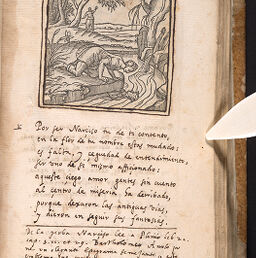 Por ser Narciso tu de ti contento,
en la flor de tu nombre estas mudado;
es falta, y ceguedad de entendimiento,
ser uno de si mismo afficionado;
aqueste ciego amor gentes sin cuento
al centro de miseria ha derribado,
porque dexaron las antiguas vias,
y dieron en seguir sus fantasias.
De la yerba Narciso lee a Plinio lib 21.
cap. 5.